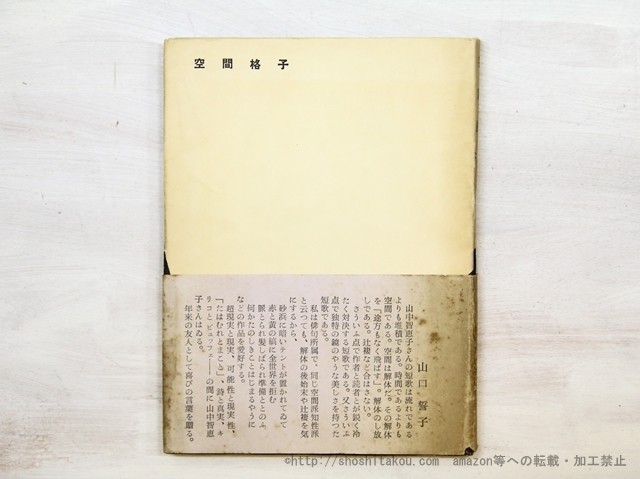 空間格子
山口誓子
山中智恵子さんの短歌は流れである
よりも堆積である。時間であるよりも
空間である。空間は解体だ。その解体
を「途方もなく飛ばす」。解体のし放
しである。辻褄など合はさない。
さういふ点で作者と読者とが鋭く冷
たく対決する短歌である。又さういふ
点で独特の鏡のやうな美しさを持つた
短歌である。
私は俳句所属で、同じ空間派知性派
と云つても、解体の後始末や辻褄を気
にするから、
砂浜に暗いテントが置かれてゐて
赤と黄の縞に全世界を拒む
脈とられ髪しばられ準備ととのふ
何かたのしきことはじまるやうに
などの作品を愛好する。
超現実と現実、可能性と現実性、
「たはむれとまこと」、詩と真実、キ
リコとビュッフェ——の間に山中智恵
子さんはゐる。
年来の友人として喜びの言葉を贈る。
©http://shoshitakou.com amazon等への転載・加工禁止